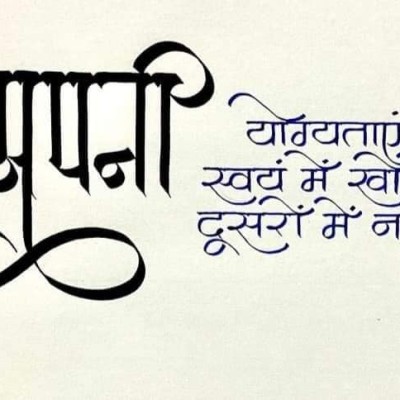 अपनी
योग्यताएं
स्वयं में खो
दूसरों में न